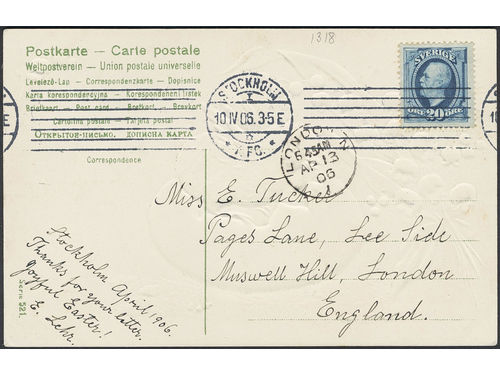 1318
Postkarte — Carte postale
Weltpostverein — Union postale universelle
Levelező-Lap — Correspondenzkarte — Dopisnice
Karta korespondencyjna — Korespondenční lístek
Briefkort — Post card — Bretkort — Brevkort
Cartolina postale — Tarjeta postal
Открытое письмо, дописна карта
Correspondence
STOCKHOLM
1
10 IV 06. 3-5 E
b
* AFG. *
SVERIGE
20
ÖRE ÖRE
LONDON N
6 45 AM
AP 13
06
Miss E. Tucker
Pages Lane, Lee Side
Muswell Hill, London
England.
Stockholm April 1906.
Thanks for your letter.
Joyful Easter!
E. Lehr.
Serie 521.